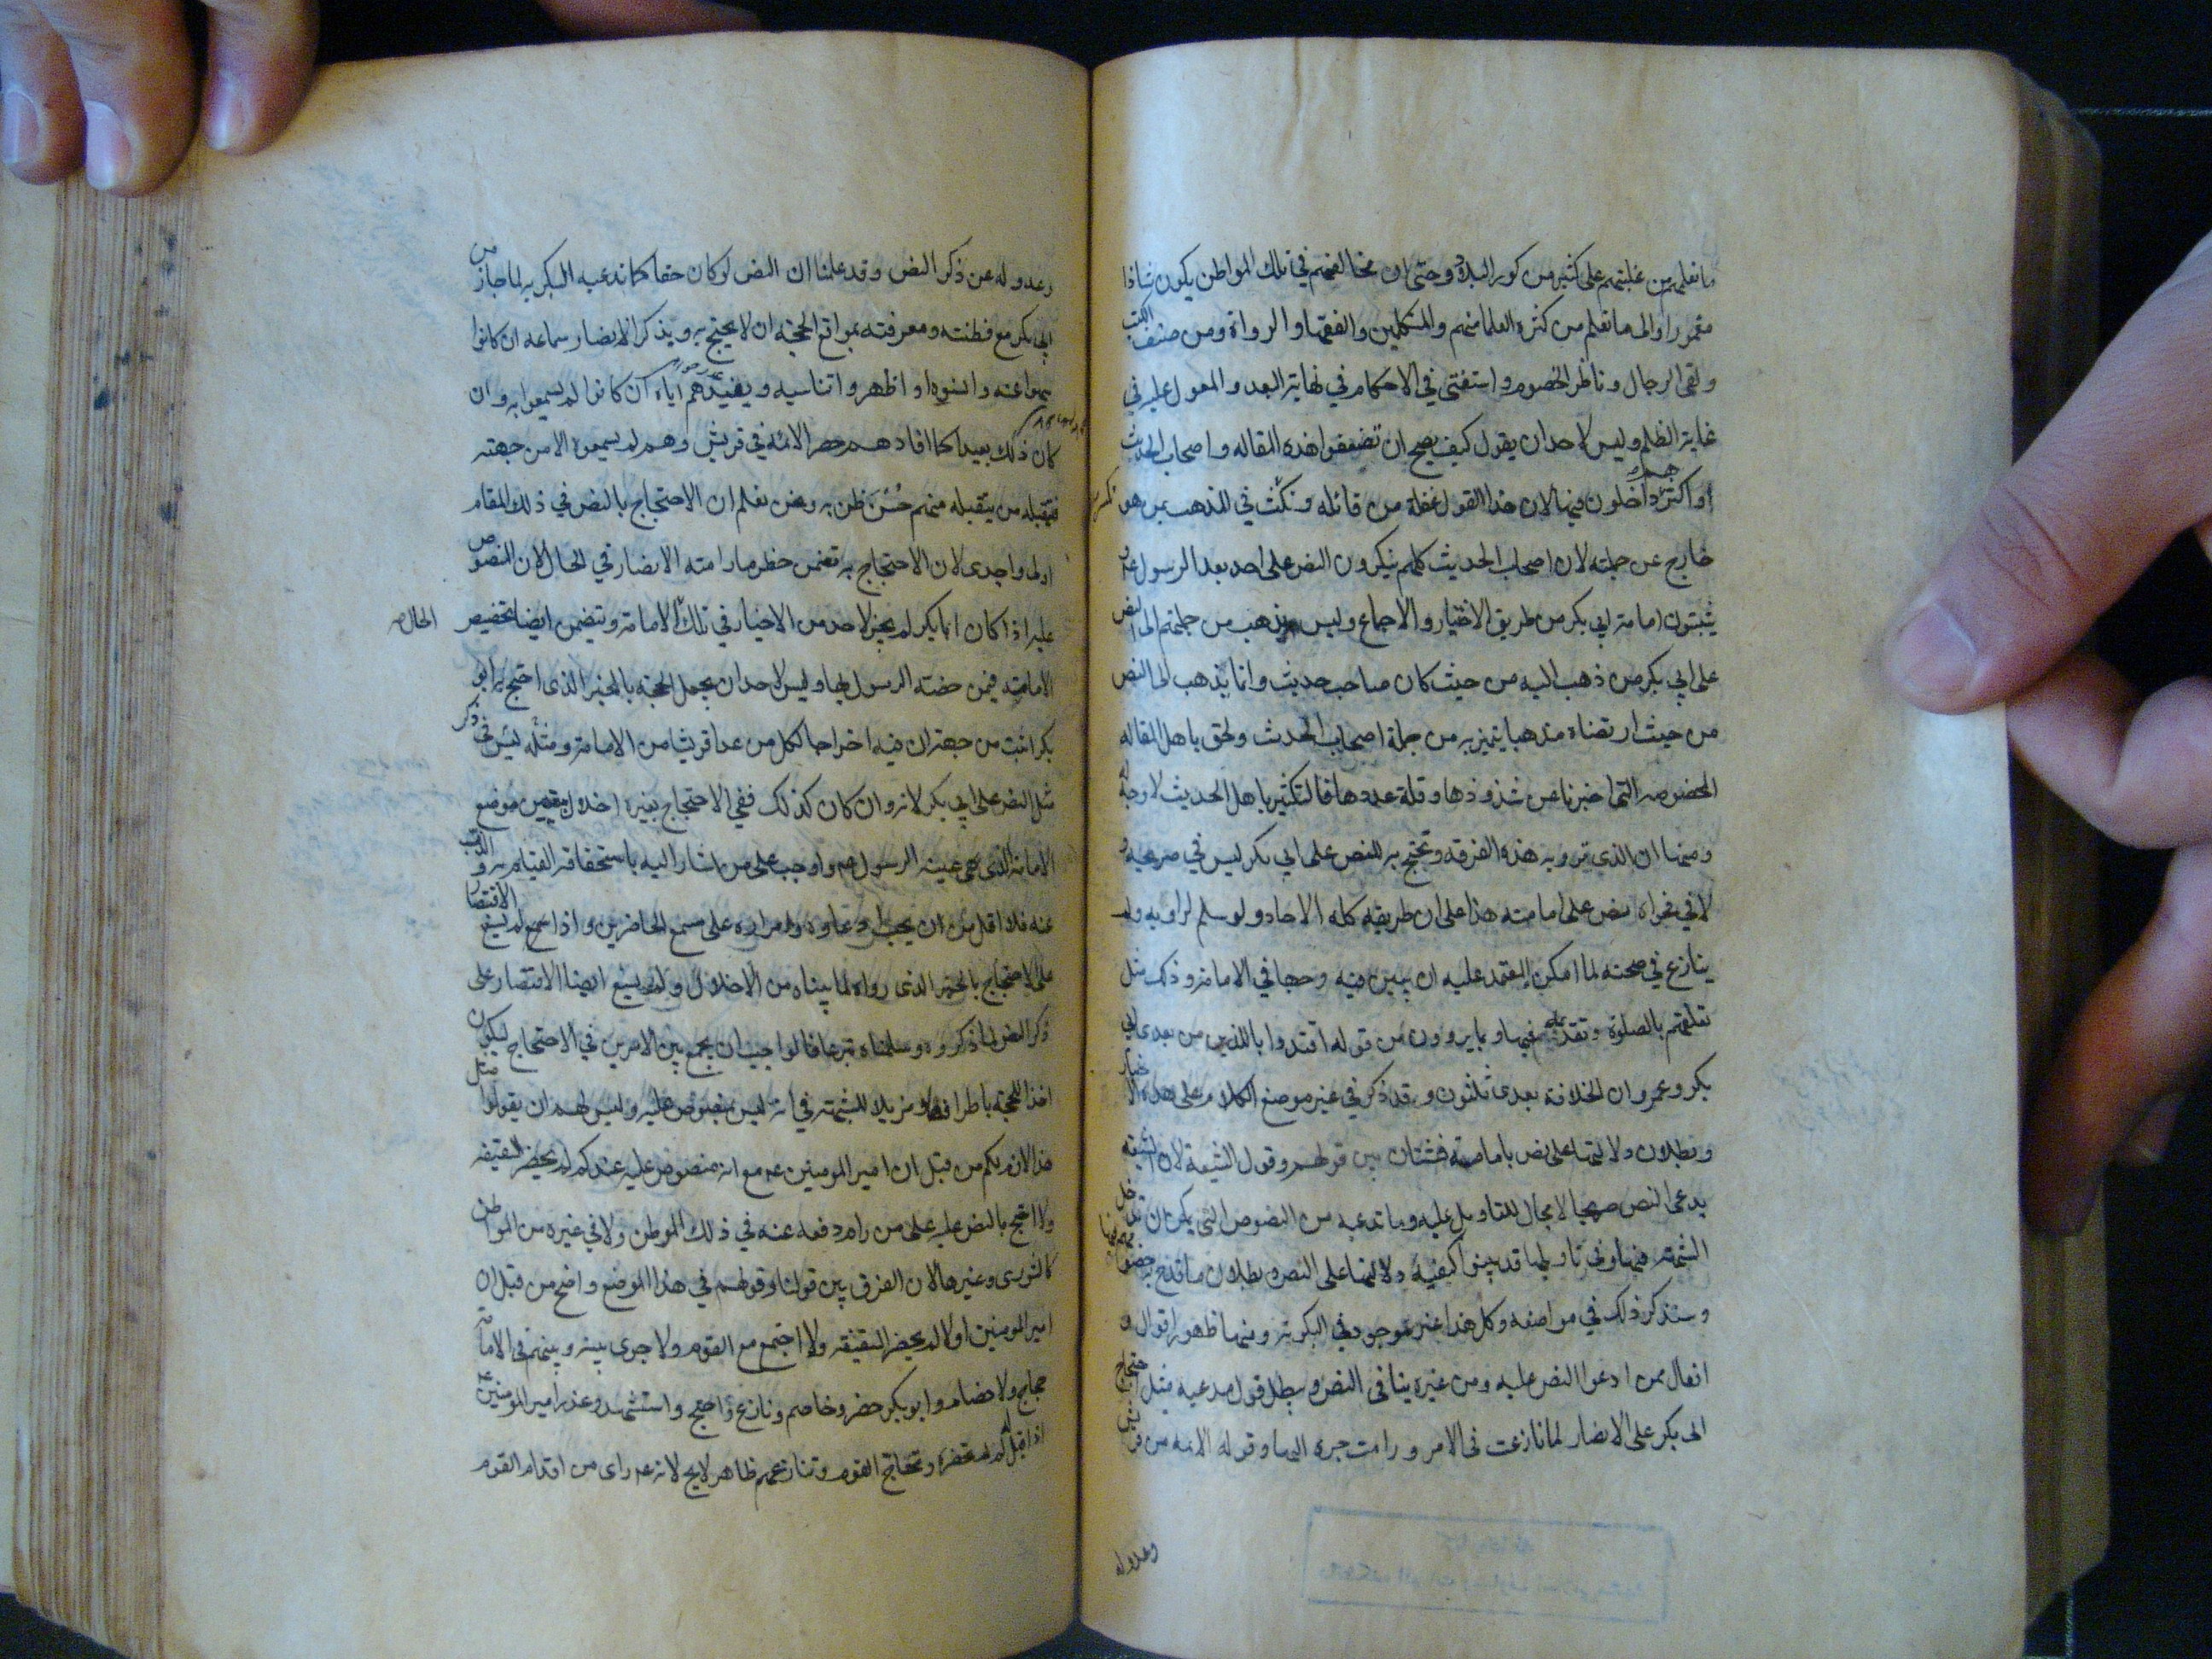 ما نعلمهم من غلبتهم على كثير من كور البلاد وحتى ان مخالفهم في تلك المواطن يكون شاذا
مغمورا والى ما نعلم من كثرة العلما منهم والمتكلمين والفقها والرواة ومن صنف الكتب
ولقى الرجال وناظر الخصوم واستفتى في الاحكام في نهاية البعد والمعول عليه في
غاية الظلم وليس لاحد ان يقول كيف يصح ان تضعفوا هذه المقاله واصحاب الحديث
او اكثرهم داخلون فيها لان هذا القول غفلة من قائله وتكثر في المذهب بمن هو
خارج عن جملته لان اصحاب الحديث كلهم ينكرون النص على احد بعد الرسول عم و
يثبتون امامة ابي بكر من طريق الاختيار والاجماع وليس يذهب من جملتهم الى النص
على ابي بكر من ذهب اليه من حيث كان صاحب حديث وانما يذهب الى النص
من حيث ارتضاه مذهبا يتميز به من جملة اصحاب الحديث ولحق باهل المقاله
المخصوصه التي اخبرنا عن شذوذها وقلة عددها فالتكثير باهل الحديث لا وجه له
ومنها ان الذي ترويه هذه الفرقه وتحتج به للنص على ابي بكر ليس في صريحه و
لا في فحواه نص على امامته هذا على ان طريقه كله الاحاد ولو سلم لراويه ولم
ينازع في صحته لما امكن المعتمد عليه ان يبين فيه وجها في الامامة وذلك مثل
تعلقهم بالصلوة وتقديمه فيها وبما يروون من قوله اقتدوا باللذين من بعدى ابي
بكر وعمر وان الخلافة بعدى ثلثون وقد ذكر في غير موضع الكلام على هذه الاخبار
وبطلان دلالتها على نص بامامته فشتان بين قولهم وقول الشيعة لان الشيعه
يدعى النص صريحا لا مجال للتاويل عليه وما تدعيه من النصوص التي يمكن ان تدخل
الشبهه فيها وفي تاويلها قد بينوا كيفية دلالتها على النص وبطلان ما قدح به خصومهم فيها
وسنذكر ذلك في مواضعه وكل هذا غير موجود في البكرية ومنها ظهور اقوال و
افعال ممن ادعوا النص عليه ومن غيره ينافى النص ويبطل قول مدعيه مثل احتجاج
ابى بكر على الانصار لما نازعت فى الامر ورامت جره اليها وقوله الائمه من قريش
وعدوله
وعدوله عن ذكر النص وقد علمنا ان النص لو كان حقا كما تدعيه البكريه لما جاز من
ابي بكر مع فطنته ومعرفته بمواقع الحجة ان لا يحتج به ويذكر الانصار سماعه ان كانوا
سهوا عنه وانسوه او اظهروا تناسيه ويفيدهم اياه ان كانوا لم يسمعوا به وان
كان ذلك بعيدا كما افادهم حصر الائمه في قريش وهم لم يسمعوه الا من جهته
فتقبله من يتقبله منهم حُسن ظن به ونحن نعلم ان الاحتجاج بالنص في ذلك المقام
اولى واجدى لان الاحتجاج به تضمن حظر ما رامته الانصار في الحال لان المنصوص
عليه اذا كان ابا بكر لم يجز لاحد من الاختيار في تلك الامامة ويتضمن ايضا تخصيص
الحال
الامامة فيمن خصته الرسول بها وليس لاحد ان يجعل الحجة بالخبر الذى احتج به ابو
بكر اثبت من جهة ان فيه اخراجا لكل من عدا قريشا من الامامة ومثله ليس في ذكر
مثل النص على ابي بكر لانه وان كان كذلك ففي الاحتجاج بغيره اخلال بتعيين موضع
الامامة الذى عينه الرسول عم واوجب على من اشار اليه باستحقاقه القيام به و الذب
عنه فلا اقل من ان يجب وامراره على سمع الحاضرين واذا لم يسغ الاقتصار
على الاحتجاج بالخبر الذى رواه لما بيناه من الاخلال ولم يسغ ايضا الاقتصار على
ذكر النص لما ذكروه وسلمناه تبرعا فالواجب ان يجمع بين الامرين في الاحتجاج ليكون
اخذا للحجة باطرافها ومزيلا للشبهة في انه ليس بمنصوص عليه وليس لهم ان يقولوا مثل
هذا لازم لكم من قبل ان امير المومنين عم مع انه منصوص عليه عندكم لم يحضر السقيفه
ولا احتج بالنص عليه على من رام دفعه عنه في ذلك الموطن ولا في غيره من المواطن
كالشورى وغيرها لان الفرق بين قولنا وقولهم في هذا الموضع واضح من قبل ان
امير المومنين اولا لم يحضر السقيفه ولا اجتمع مع القوم ولا جرى بينه وبينهم في الامامة
حجاج ولا خصام وابو بكر حضر وخاصم ونازع واحتج واستشهد وعذر امير المومنين عم
اذا قيل له لم لم تحضره وتحاج القوم وتنازعهم ظاهر لايح لانه عم راى من اقدام القوم